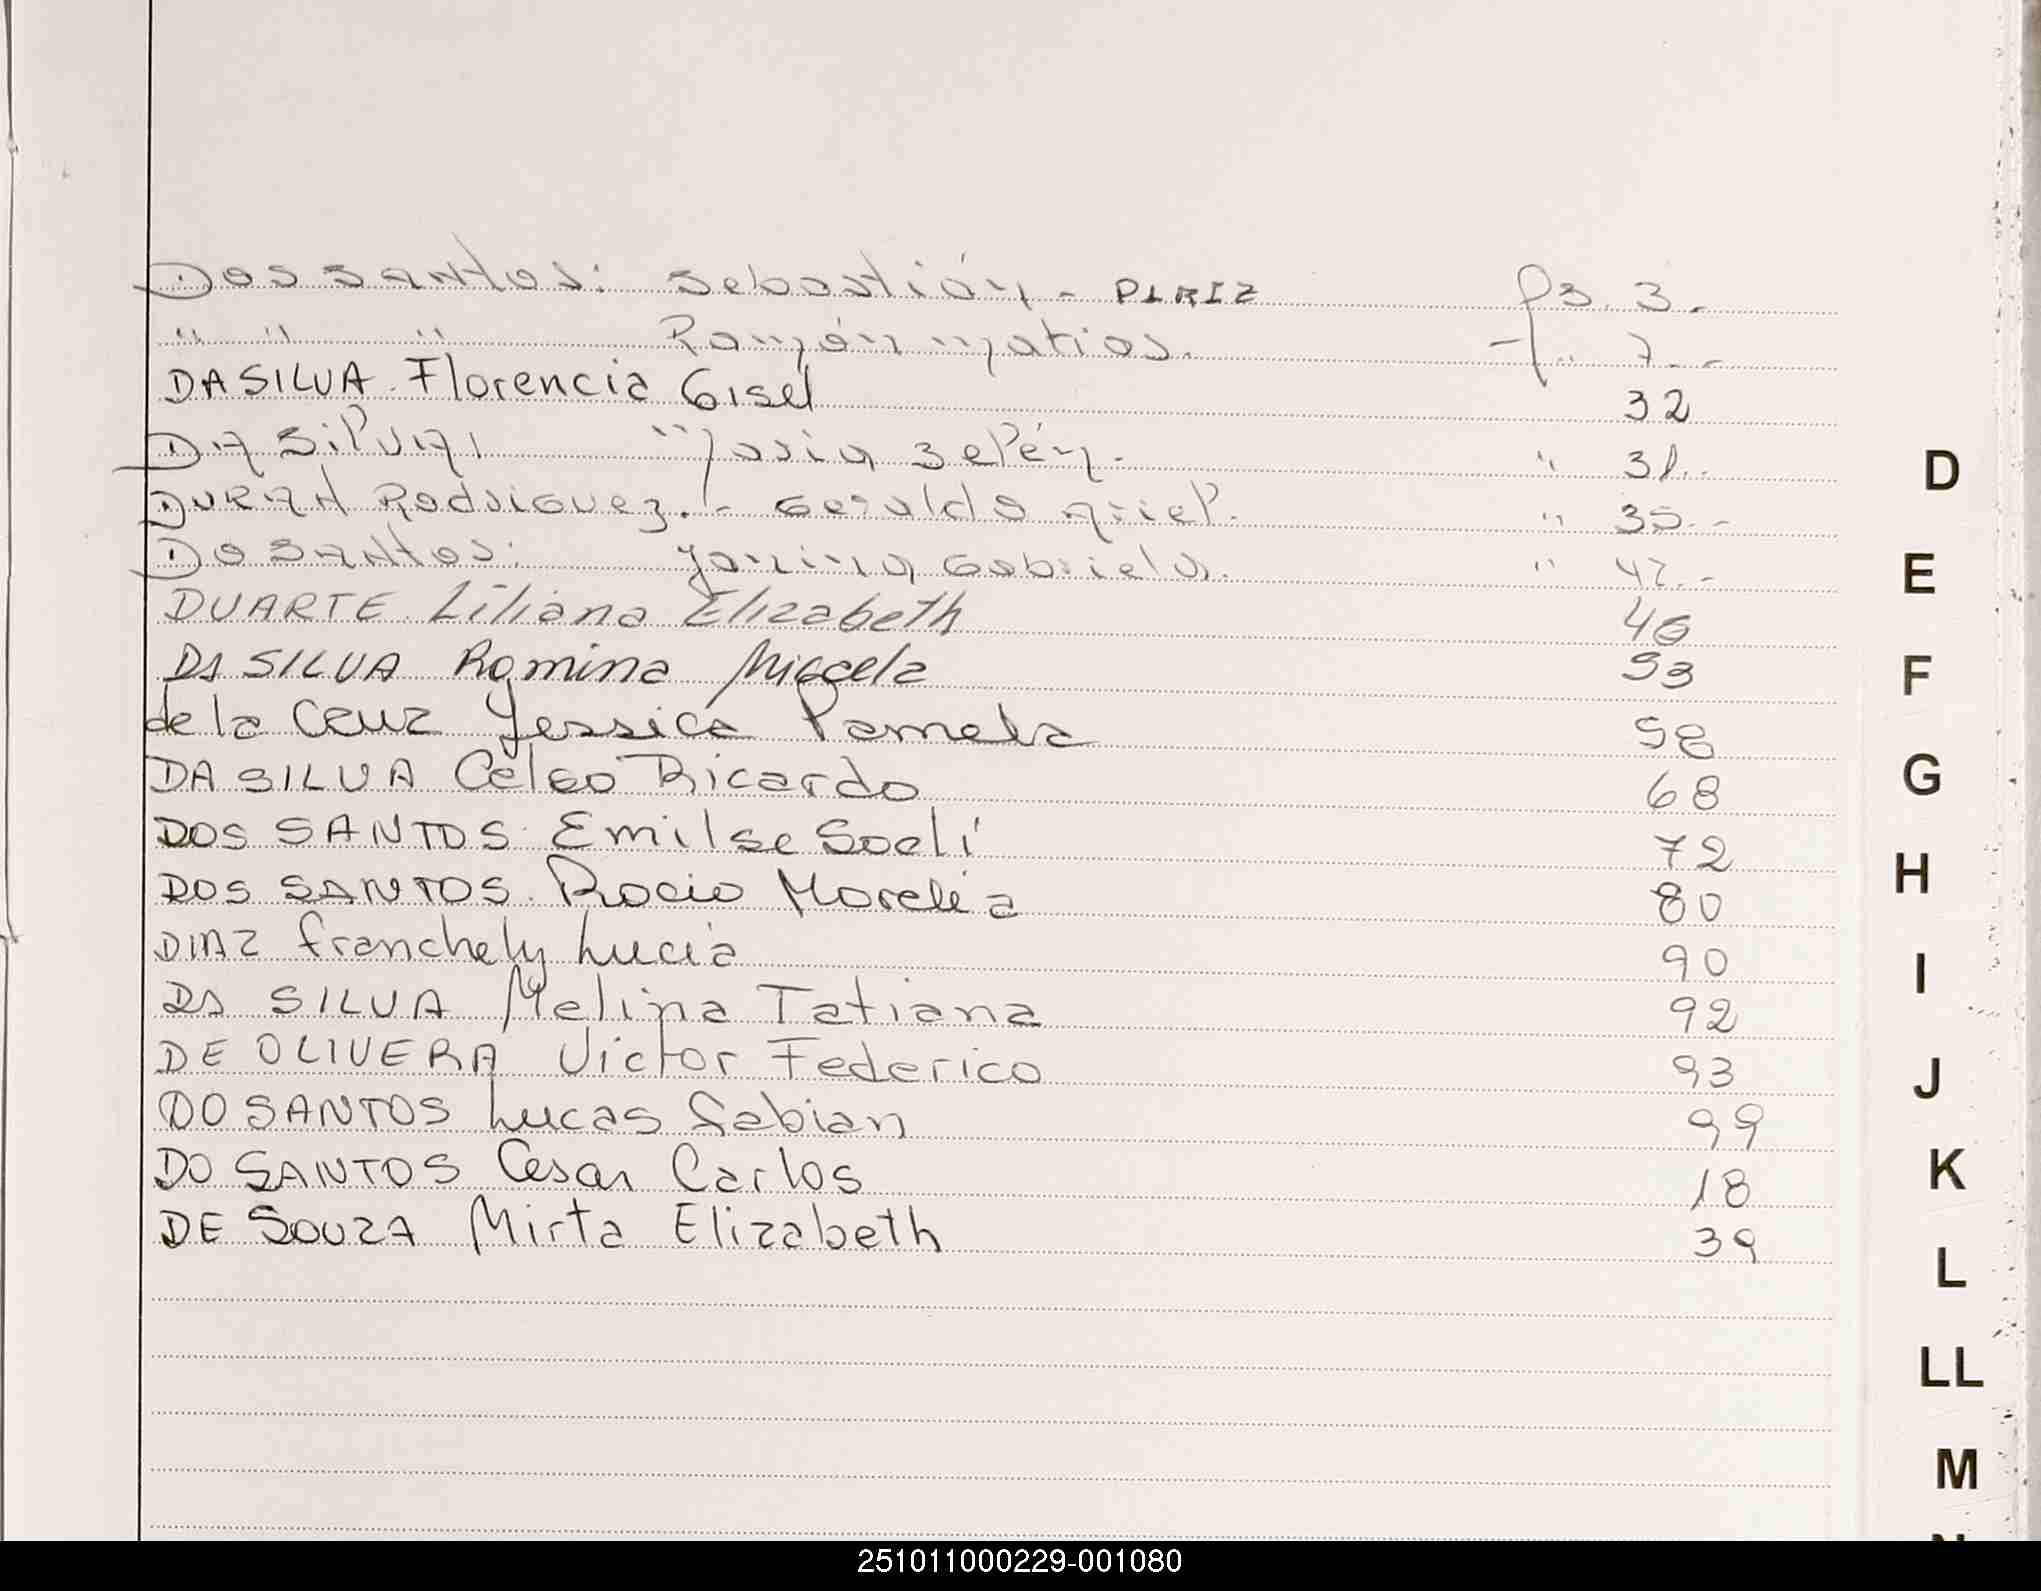 Dos santos: Sebastián - PIRIZ Pg. 3.-
" " " Ramón matias. - " 7.-
DA SILVA Florencia Gisel 32
DA Silva, María Belén. " 31.-
DURAN Rodriguez. - Geraldo Ariel. " 35.-
Do santos: Janina Gabriela. " 42.-
DUARTE Liliana Elizabeth 46
DA SILVA Romina Micaela 53
de la Cruz Yessica Pamela 58
DA SILVA Celso Ricardo 68
DOS SANTOS Emilse Soeli 72
DOS SANTOS Rocio Morelia 80
DIAZ franchely Lucia 90
DA SILVA Melina Tatiana 92
DE OLIVERA Victor Federico 93
DO SANTOS Lucas fabian 99
DO SANTOS Cesar Carlos 18
DE SOUZA Mirta Elizabeth 39
D
E
F
G
H
I
J
K
L
LL
M
251011000229-001080